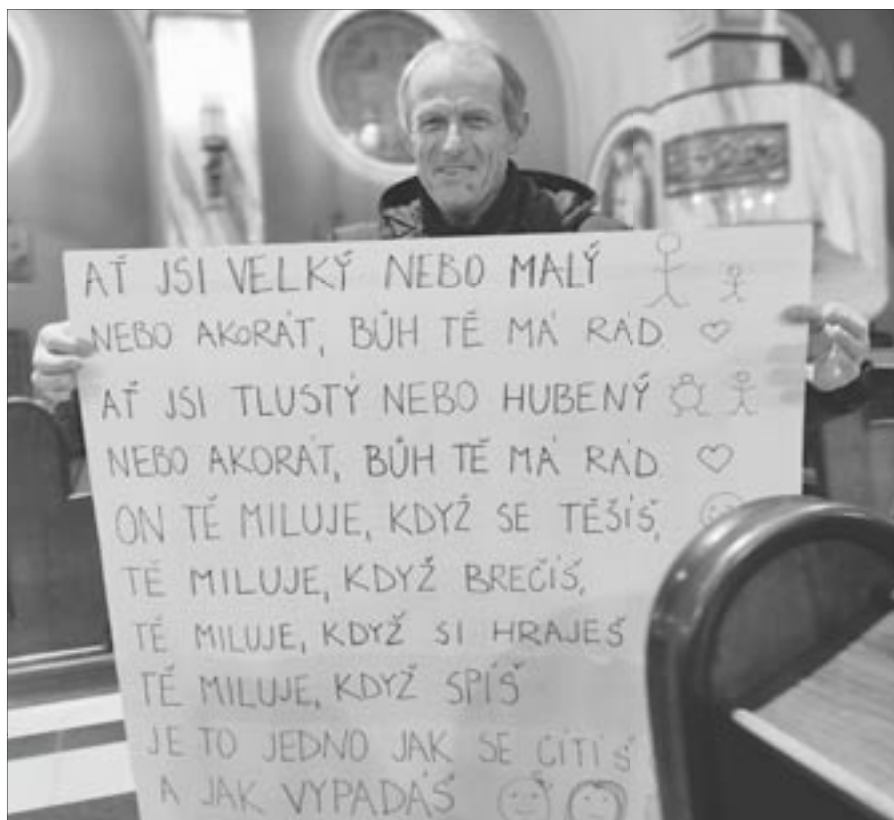 AŤ JSI VELKÝ NEBO MALÝ
NEBO AKORÁT, BŮH TĚ MÁ RÁD
AŤ JSI TLUSTÝ NEBO HUBENÝ
NEBO AKORÁT, BŮH TĚ MÁ RÁD
ON TĚ MILUJE, KDYŽ SE TĚŠÍŠ,
TĚ MILUJE, KDYŽ BREČÍŠ,
TĚ MILUJE, KDYŽ SI HRAJEŠ
TĚ MILUJE, KDYŽ SPÍŠ
JE TO JEDNO JAK SE CÍTÍŠ
A JAK VYPADÁŠ